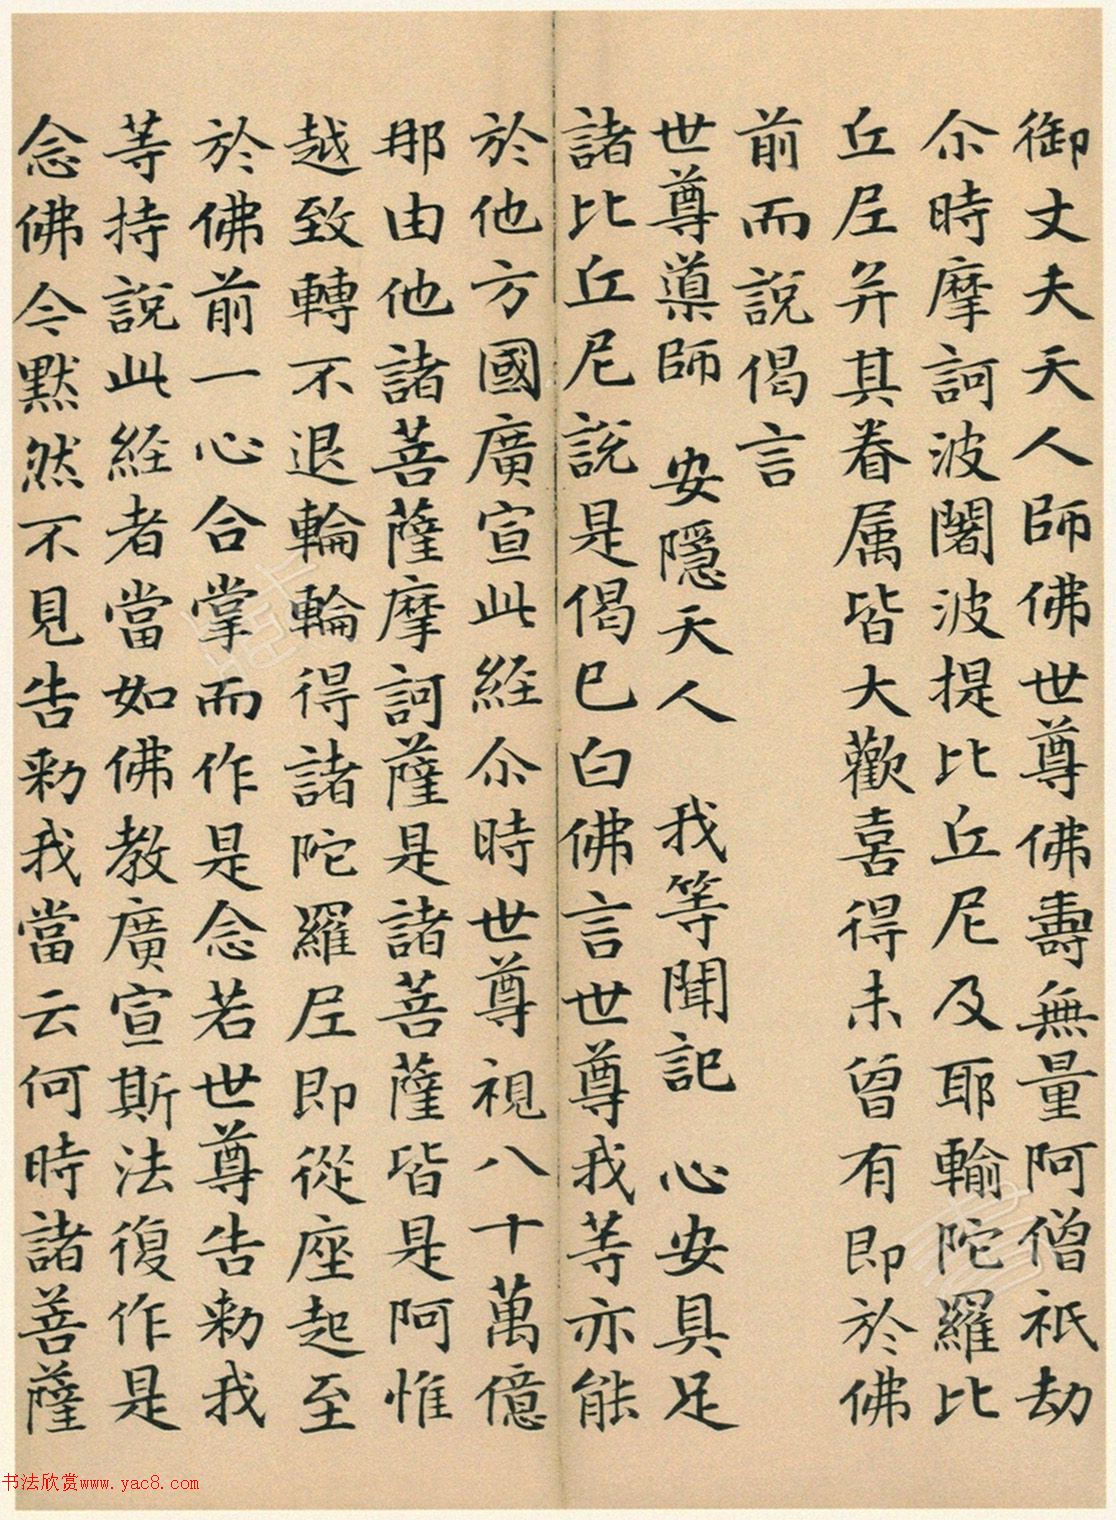 御丈夫天人師佛世尊佛壽無量阿僧祇劫
尒時摩訶波闍波提比丘尼及耶輸陀羅比
丘尼并其眷属皆大歡喜得未曾有即於佛
前而說偈言
世尊導師 安隱天人 我等聞記 心安具足
諸比丘尼說是偈已白佛言世尊我等亦能
於他方國廣宣此經尒時世尊視八十萬億
那由他諸菩薩摩訶薩是諸菩薩皆是阿惟
越致轉不退輪輪得諸陀羅尼即從座起至
於佛前一心合掌而作是念若世尊告勑我
等持說此經者當如佛教廣宣斯法復作是
念佛今默然不見告勑我當云何時諸菩薩
书法欣赏www.yac8.com